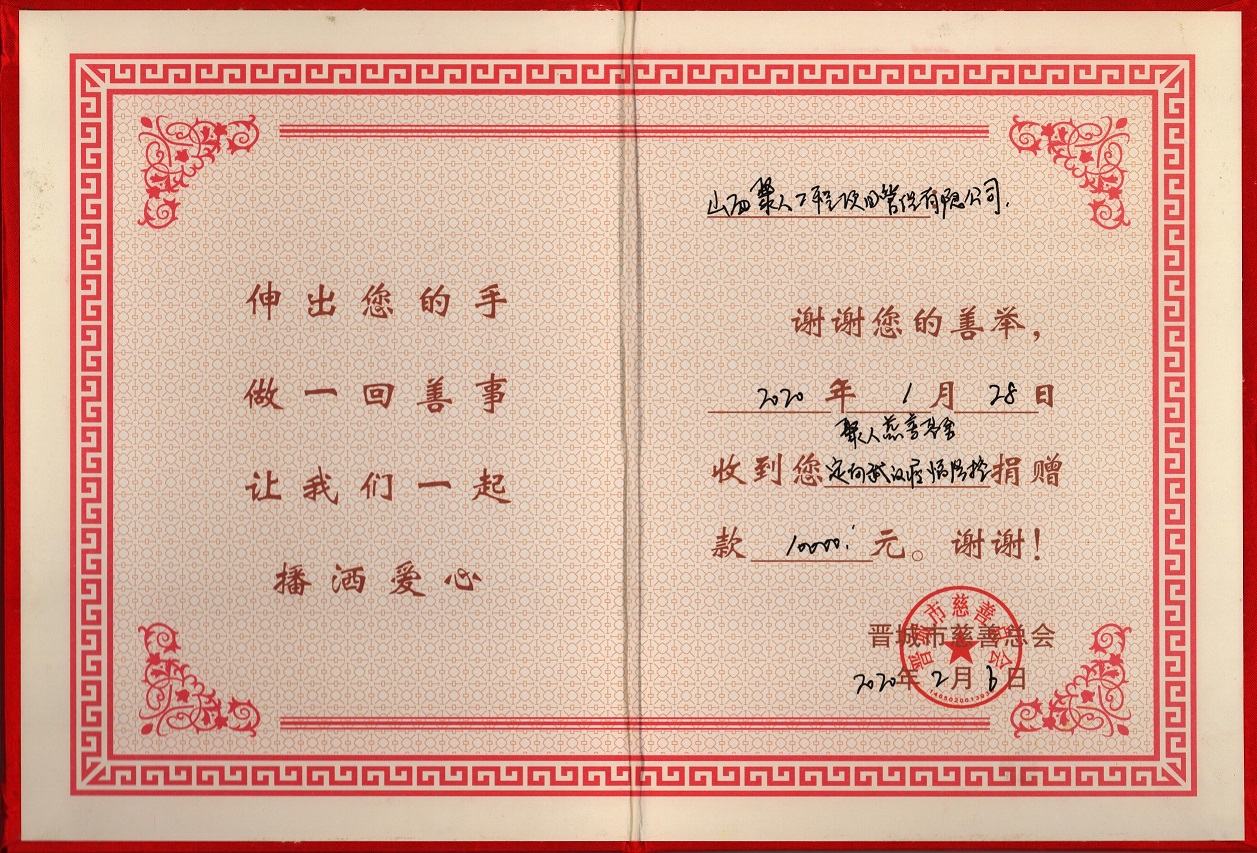 伸出您的手
做一回善事
让我们一起
播洒爱心
山西聚人工程项目管理有限公司.
谢谢您的善举，
2020年1月28日
聚人慈善基金
收到您定向武汉疫情防控捐赠
款10000.元。谢谢！
晋城市慈善总会
2020年2月6日
晋城市慈善总会